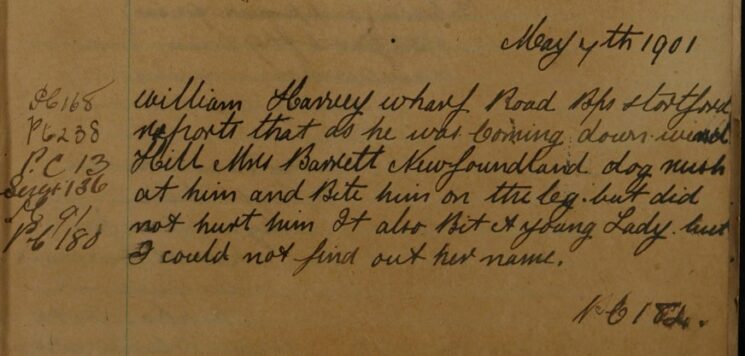 May 7th 1901
PC 168
PC 238
P.C 13
Sergt 136
PC 91
PC 180
William Harvey wharf Road Bps stortford
reports that as he was Coming down wind
Hill Mrs Barrett Newfoundland dog rush
at him and Bite him on the leg. but did
not hurt him It also Bit A young Lady. but
I could not find out her name.
PC 184.